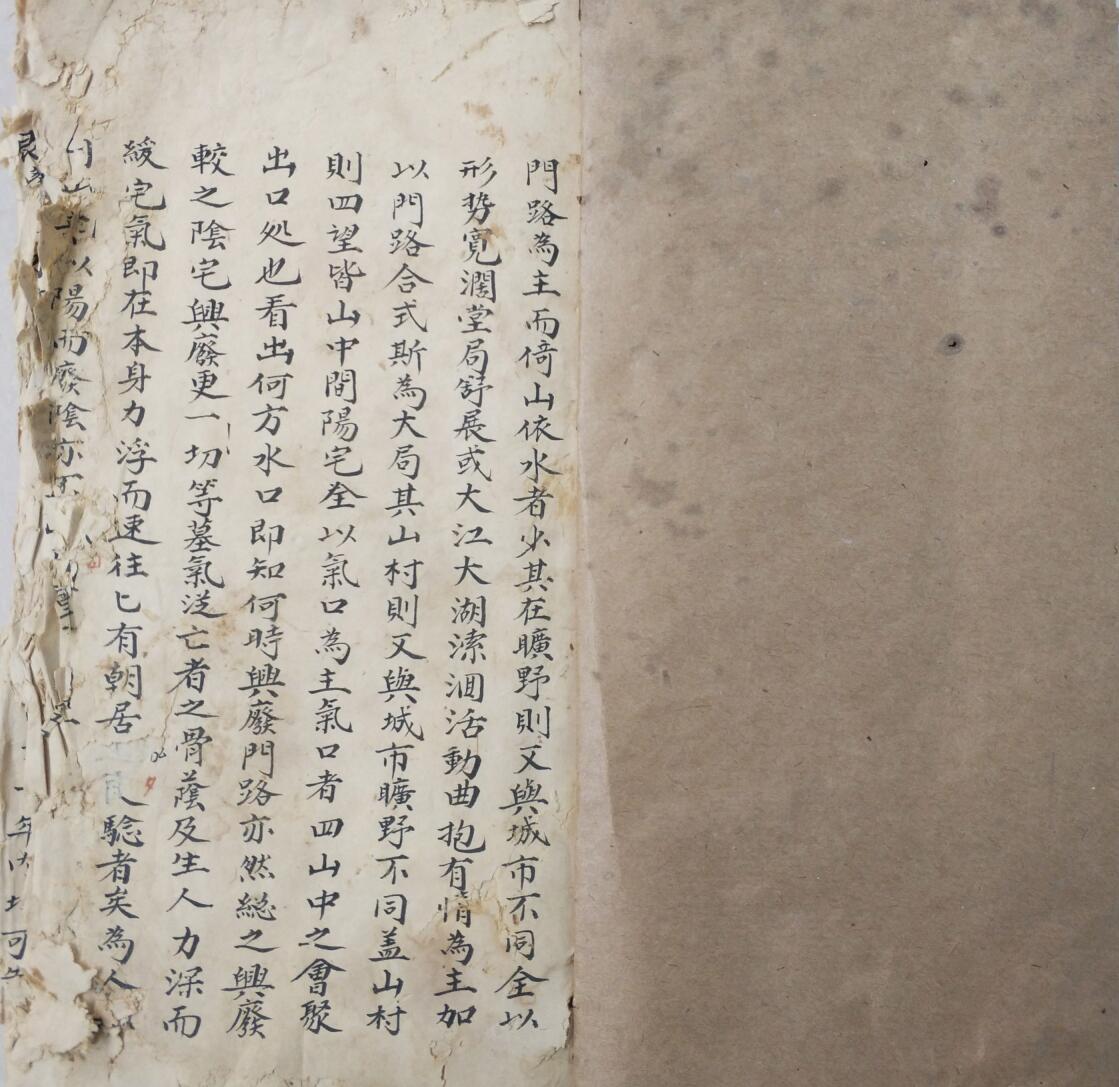 門路為主而倚山依水者少其在曠野則又與城市不同全以
形势寬濶堂局舒展或大江大湖潆洄活動曲抱有情為主加
以門路合式斯為大局其山村則又與城市曠野不同盖山村
則四望皆山中間陽宅全以氣口為主氣口者四山中之會聚
出口処也看出何方水口即知何時興廢門路亦然総之興廢
較之陰宅興廢更一切等墓氣從亡者之骨蔭及生人力深而
緩宅氣即在本身力浮而速往匕有朝居騐者矣為人
以陽而廢陰亦
年
可